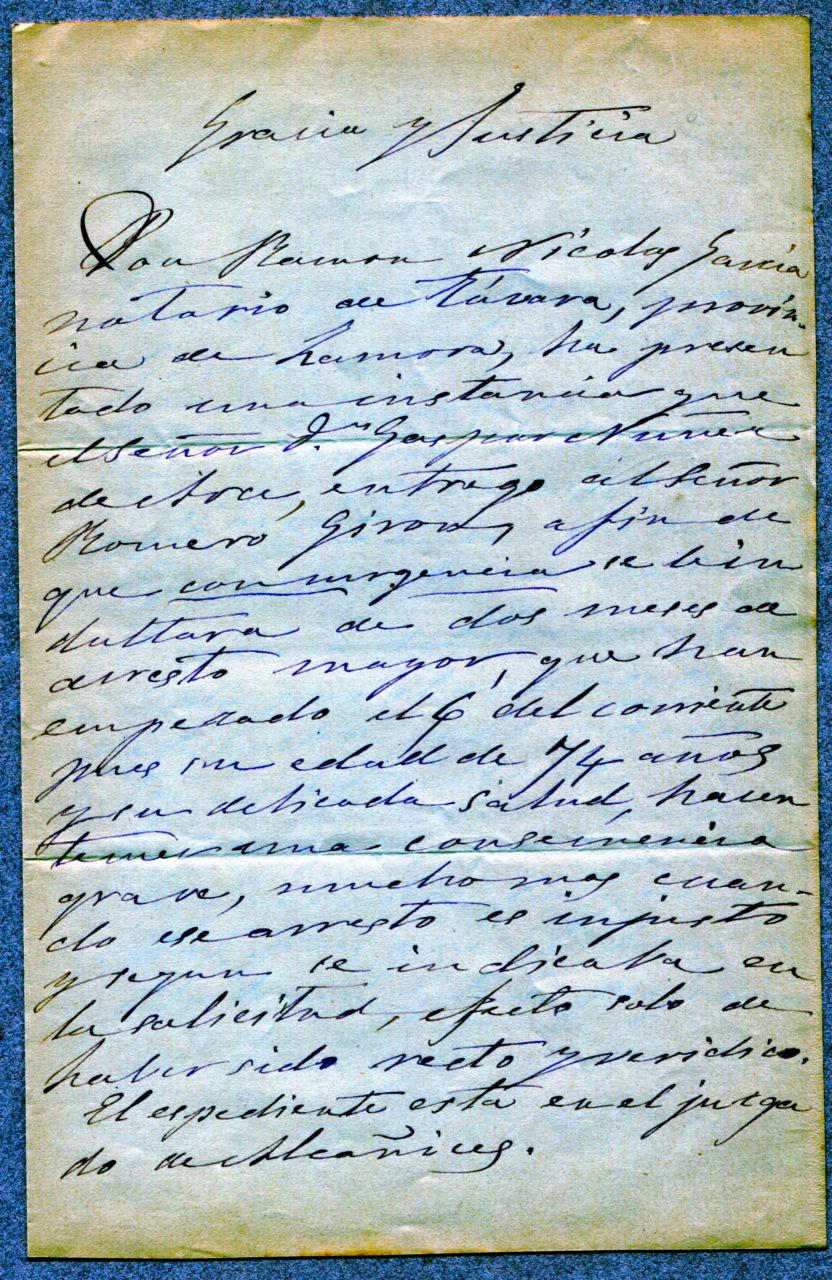 Gracia y Justicia
Don Ramon Nicolas Garcia
notario de Távara, provin-
cia de Zamora, ha presen
tado una instancia que
el Señor D.ⁿ Gaspar Nuñez
de Arce, entrego al Señor
Romero Giron, a fin de
que con urgencia se le in
dultara de dos meses de
arresto mayor, que han
empezado el 6 del corriente
pues su edad de 74 años
y su delicada salud, hacen
temer una consecuencia
grave, mucho mas cuan-
do ese arresto es injusto
y segun se indicaba en
la solicitud, efecto solo de
haber sido recto y veridico.
El espediente esta en el juzga
do de Alcañices.